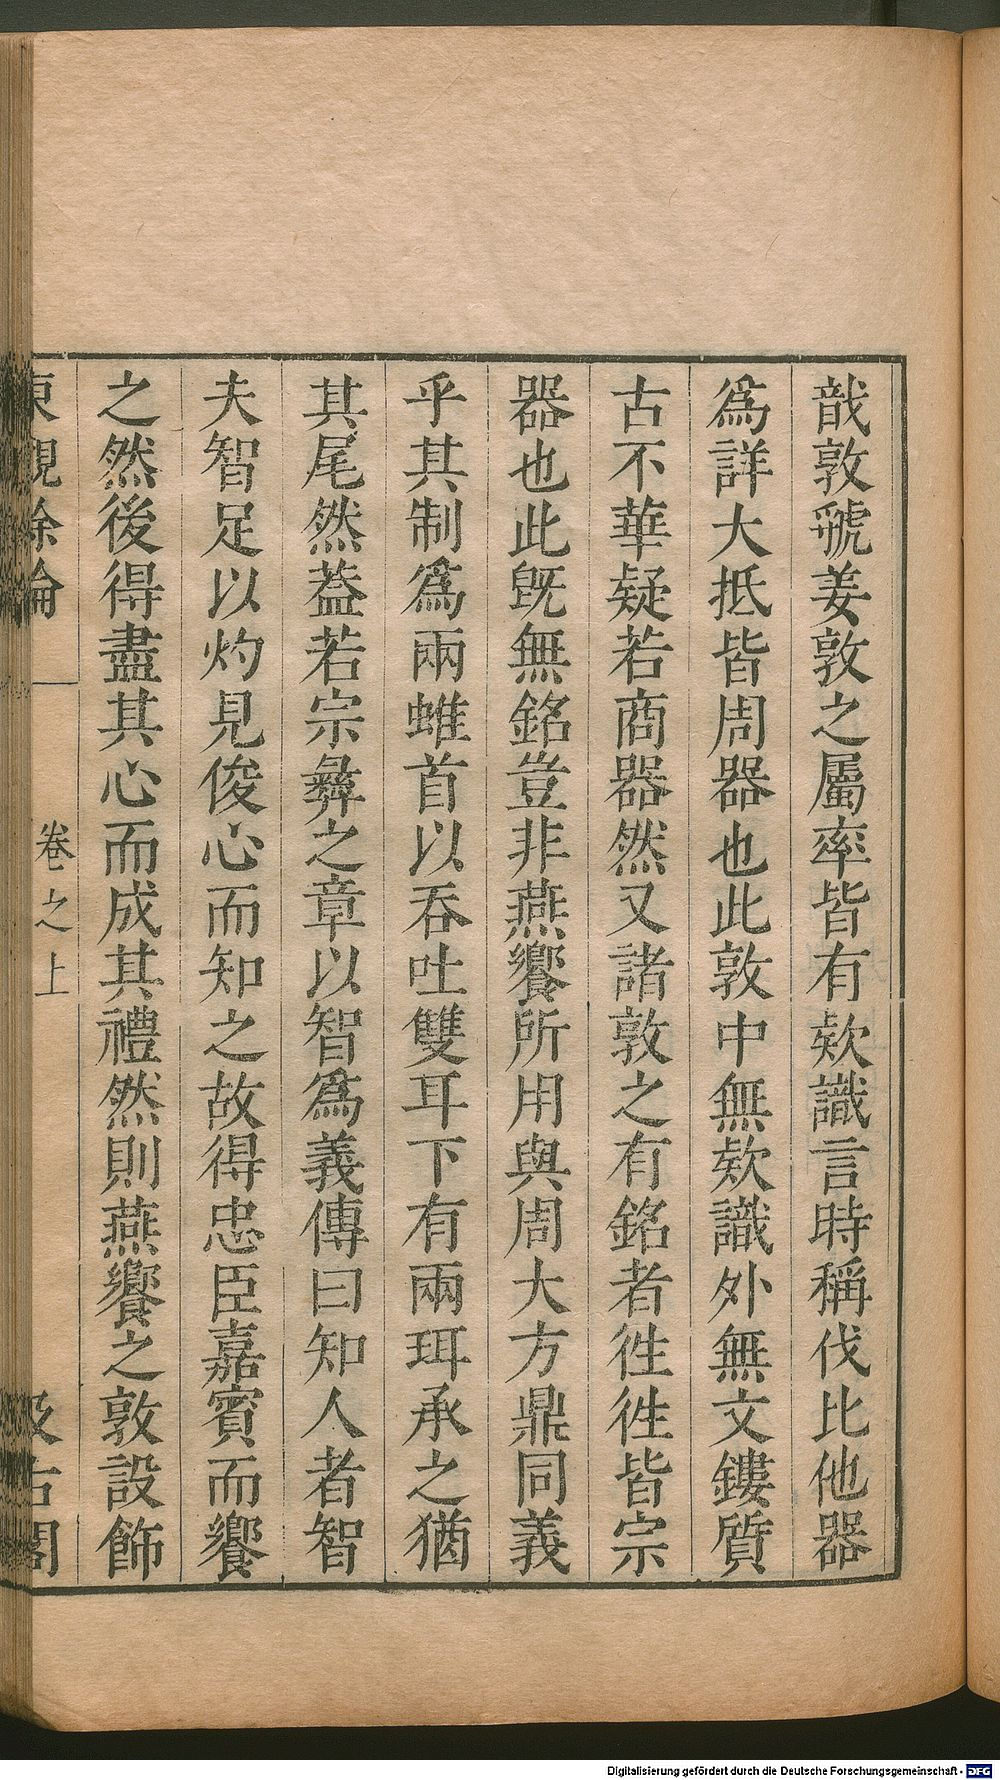 敦虢姜敦之屬率皆有欵識言時稱伐比他器
爲詳大抵皆周器也此敦中無欵識外無文鏤質
古不華疑若商器然又諸敦之有銘者徃徃皆宗
器也此旣無銘豈非燕饗所用與周大方鼎同義
乎其制爲兩蜼首以吞吐雙耳下有兩珥承之猶
其尾然葢若宗彝之章以智爲義傳曰知人者智
夫智足以灼見俊心而知之故得忠臣嘉賓而饗
之然後得盡其心而成其禮然則燕饗之敦設飾
東觀餘論
卷之上
汲古閣
Digitalisierung gefördert durch die Deutsche Forschungsgemeinschaft - DFG